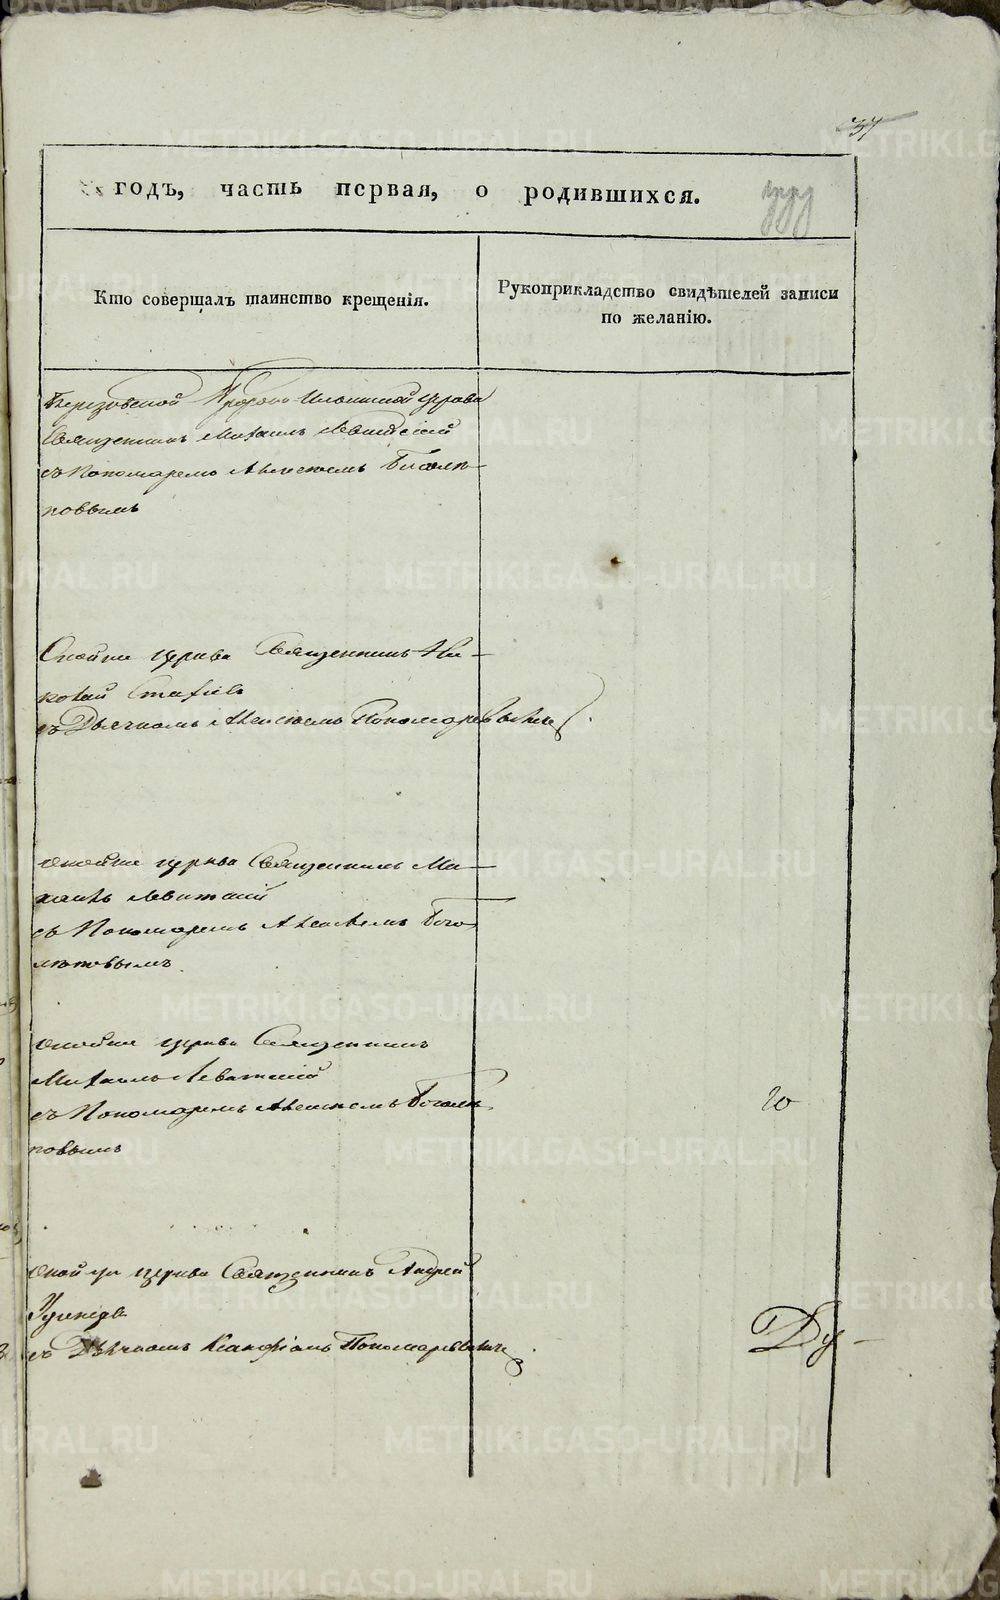 37
годъ, часть первая, о родившихся.
Кто совершалъ таинство крещенія.
Рукоприкладство свидѣтелей записи
по желанію.
Березовской Пророко-Ильинской церкви
Священникъ Михаилъ Левитскій
съ Пономаремъ Алексѣемъ Боголѣ-
повымъ
Оной же церкви Священникъ Ни-
колай
съ Дьячкомъ Алексѣемъ Пономаревымъ
оной же церкви Священникъ Ми-
хаилъ Левитскій
съ Пономаремъ Алексѣемъ Бого
лѣповымъ
оной же церкви Священникъ
Михаилъ Левитскій
съ Пономаремъ Алексѣемъ Боголѣ
повымъ
20
оной же церкви Священникъ Андрей
съ Дьячкомъ Ксанфіемъ
Ду
METRIKI.GASO-URAL.RU